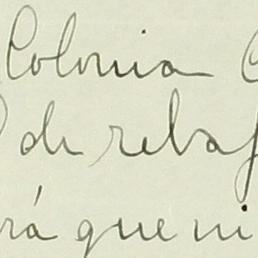 Colonia C
de rebaj
rá que ni